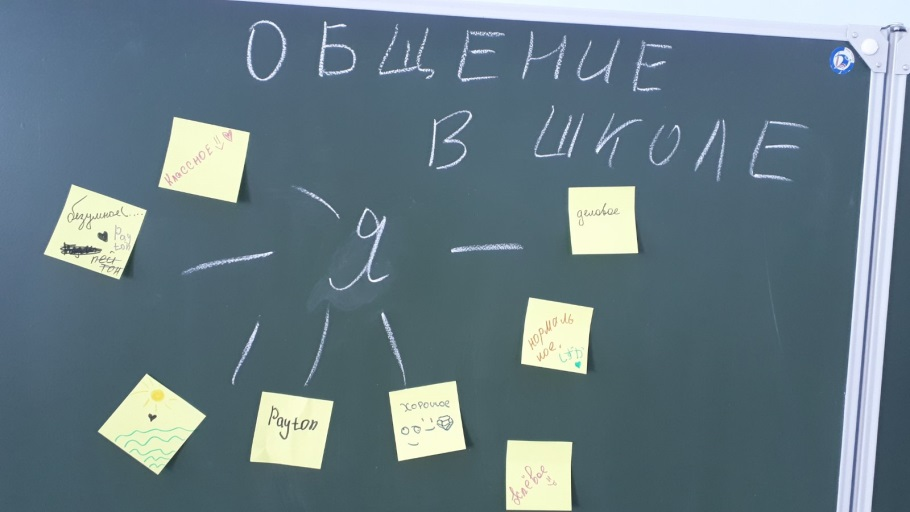 ОБЩЕНИЕ
В ШКОЛЕ
Классное!!
безумное....
Pay
ton
пей
тон
Я
деловое
нормаль
ное.
Payton
хорошее